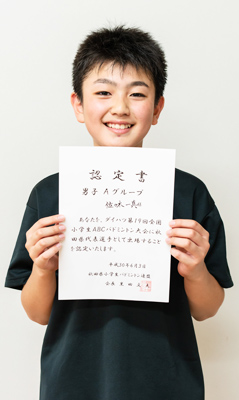 認定書
男子 Aグループ
佐々木 一
あなたを、ダイハツ第19回全国
小学生ABCバドミントン大会に秋
田県代表選手として出場すること
を認定いたします。
平成30年6月3日
秋田県小学生バドミントン連盟
会長 田